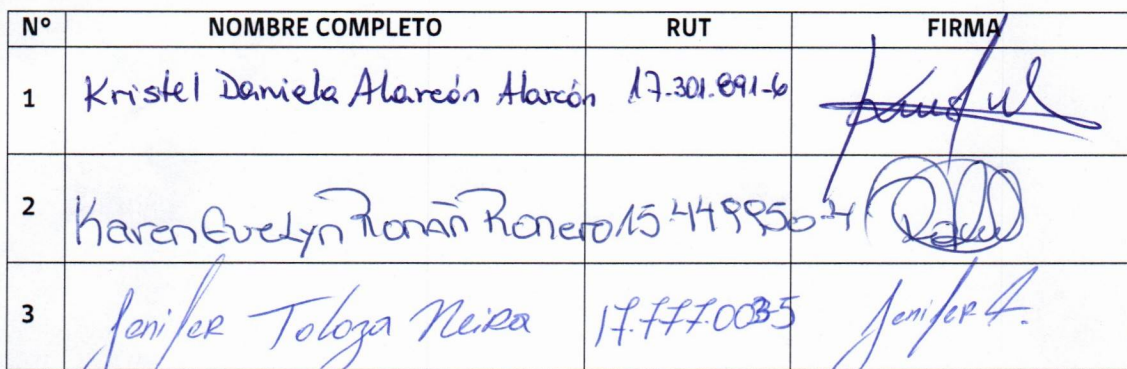 N° NOMBRE COMPLETO RUT FIRMA
1 Kristel Daniela Alarcón Alarcón 17.301.891-6
2 Karen Evelyn Román Romero 15.449950-4
3 Jenifer Toloza Neira 17.777.003-5 Jenifer T.